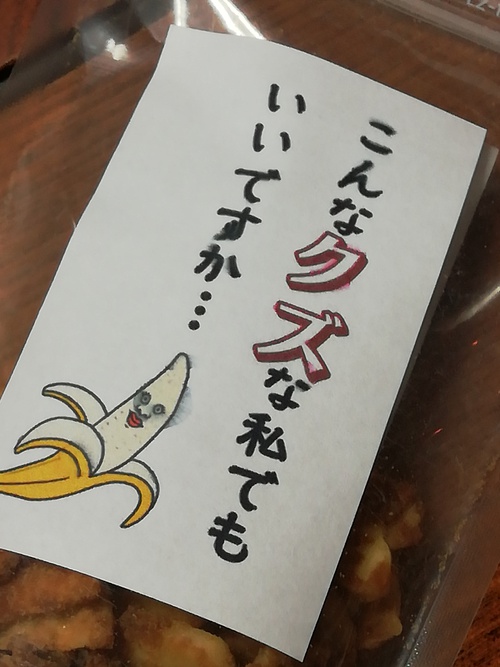 こんなクズな私でも
いいですか…